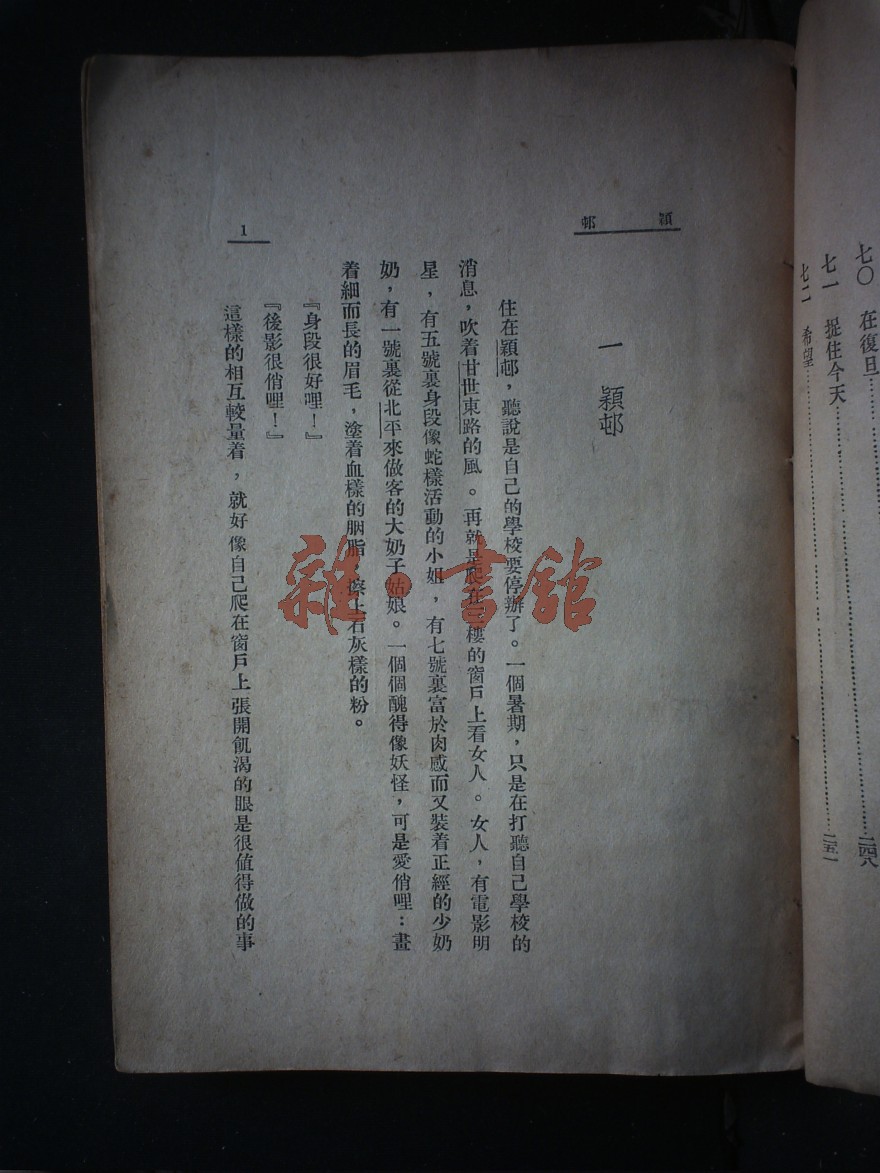 七〇 在復旦……二四八
七一 捉住今天……二五一
七二 希望……
穎邨
一 穎邨
住在穎邨，聽說是自己的學校要停辦了。一個暑期，只是在打聽自己學校的
消息，吹着甘世東路的風。再就是爬在樓的窗戶上看女人。女人，有電影明
星，有五號裏身段像蛇樣活動的小姐，有七號裏富於肉感而又裝着正經的少奶
奶，有一號裏從北平來做客的大奶子姑娘。一個個醜得像妖怪，可是愛俏哩：畫
着細而長的眉毛，塗着血樣的胭脂，擦上石灰樣的粉。
『身段很好哩！』
『後影很俏哩！』
這樣的相互較量着，就好像自己爬在窗戶上張開飢渴的眼是很值得做的事
1
雜·書館